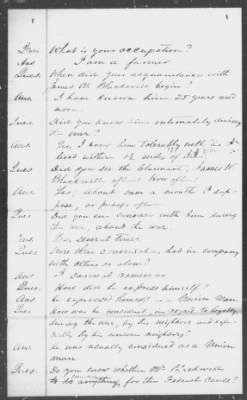 Ques What is your occupation?
Ans I am a farmer
Ques When did your acquaintance with
James W. begin?
Ans I have known him 25 years and
more.
Ques Did you know him intimately during
the war?
Ans Yes, I knew him tolerably well as I
lived within 1½ miles of him
Ques Did you see the claimant, James W.
often. How often
Ans Yes, about once a month I sup-
pose, or perhaps
Ques Did you ever converse with him during
the war, about the war.
Ans Yes, several times.
Ques Were these in company
with others or alone?
Ans I cannot remember
Ques How did he express himself?
Ans he expressed himself a Union Man
Ques How was he considered, in regard to loyalty
during the war, by his neighbors and espe-
cially by his Union neighbors?
Ans he was usually considered as a Union
man
Ques. Do you know whether Mr
to do anything, for the Federal Cause?